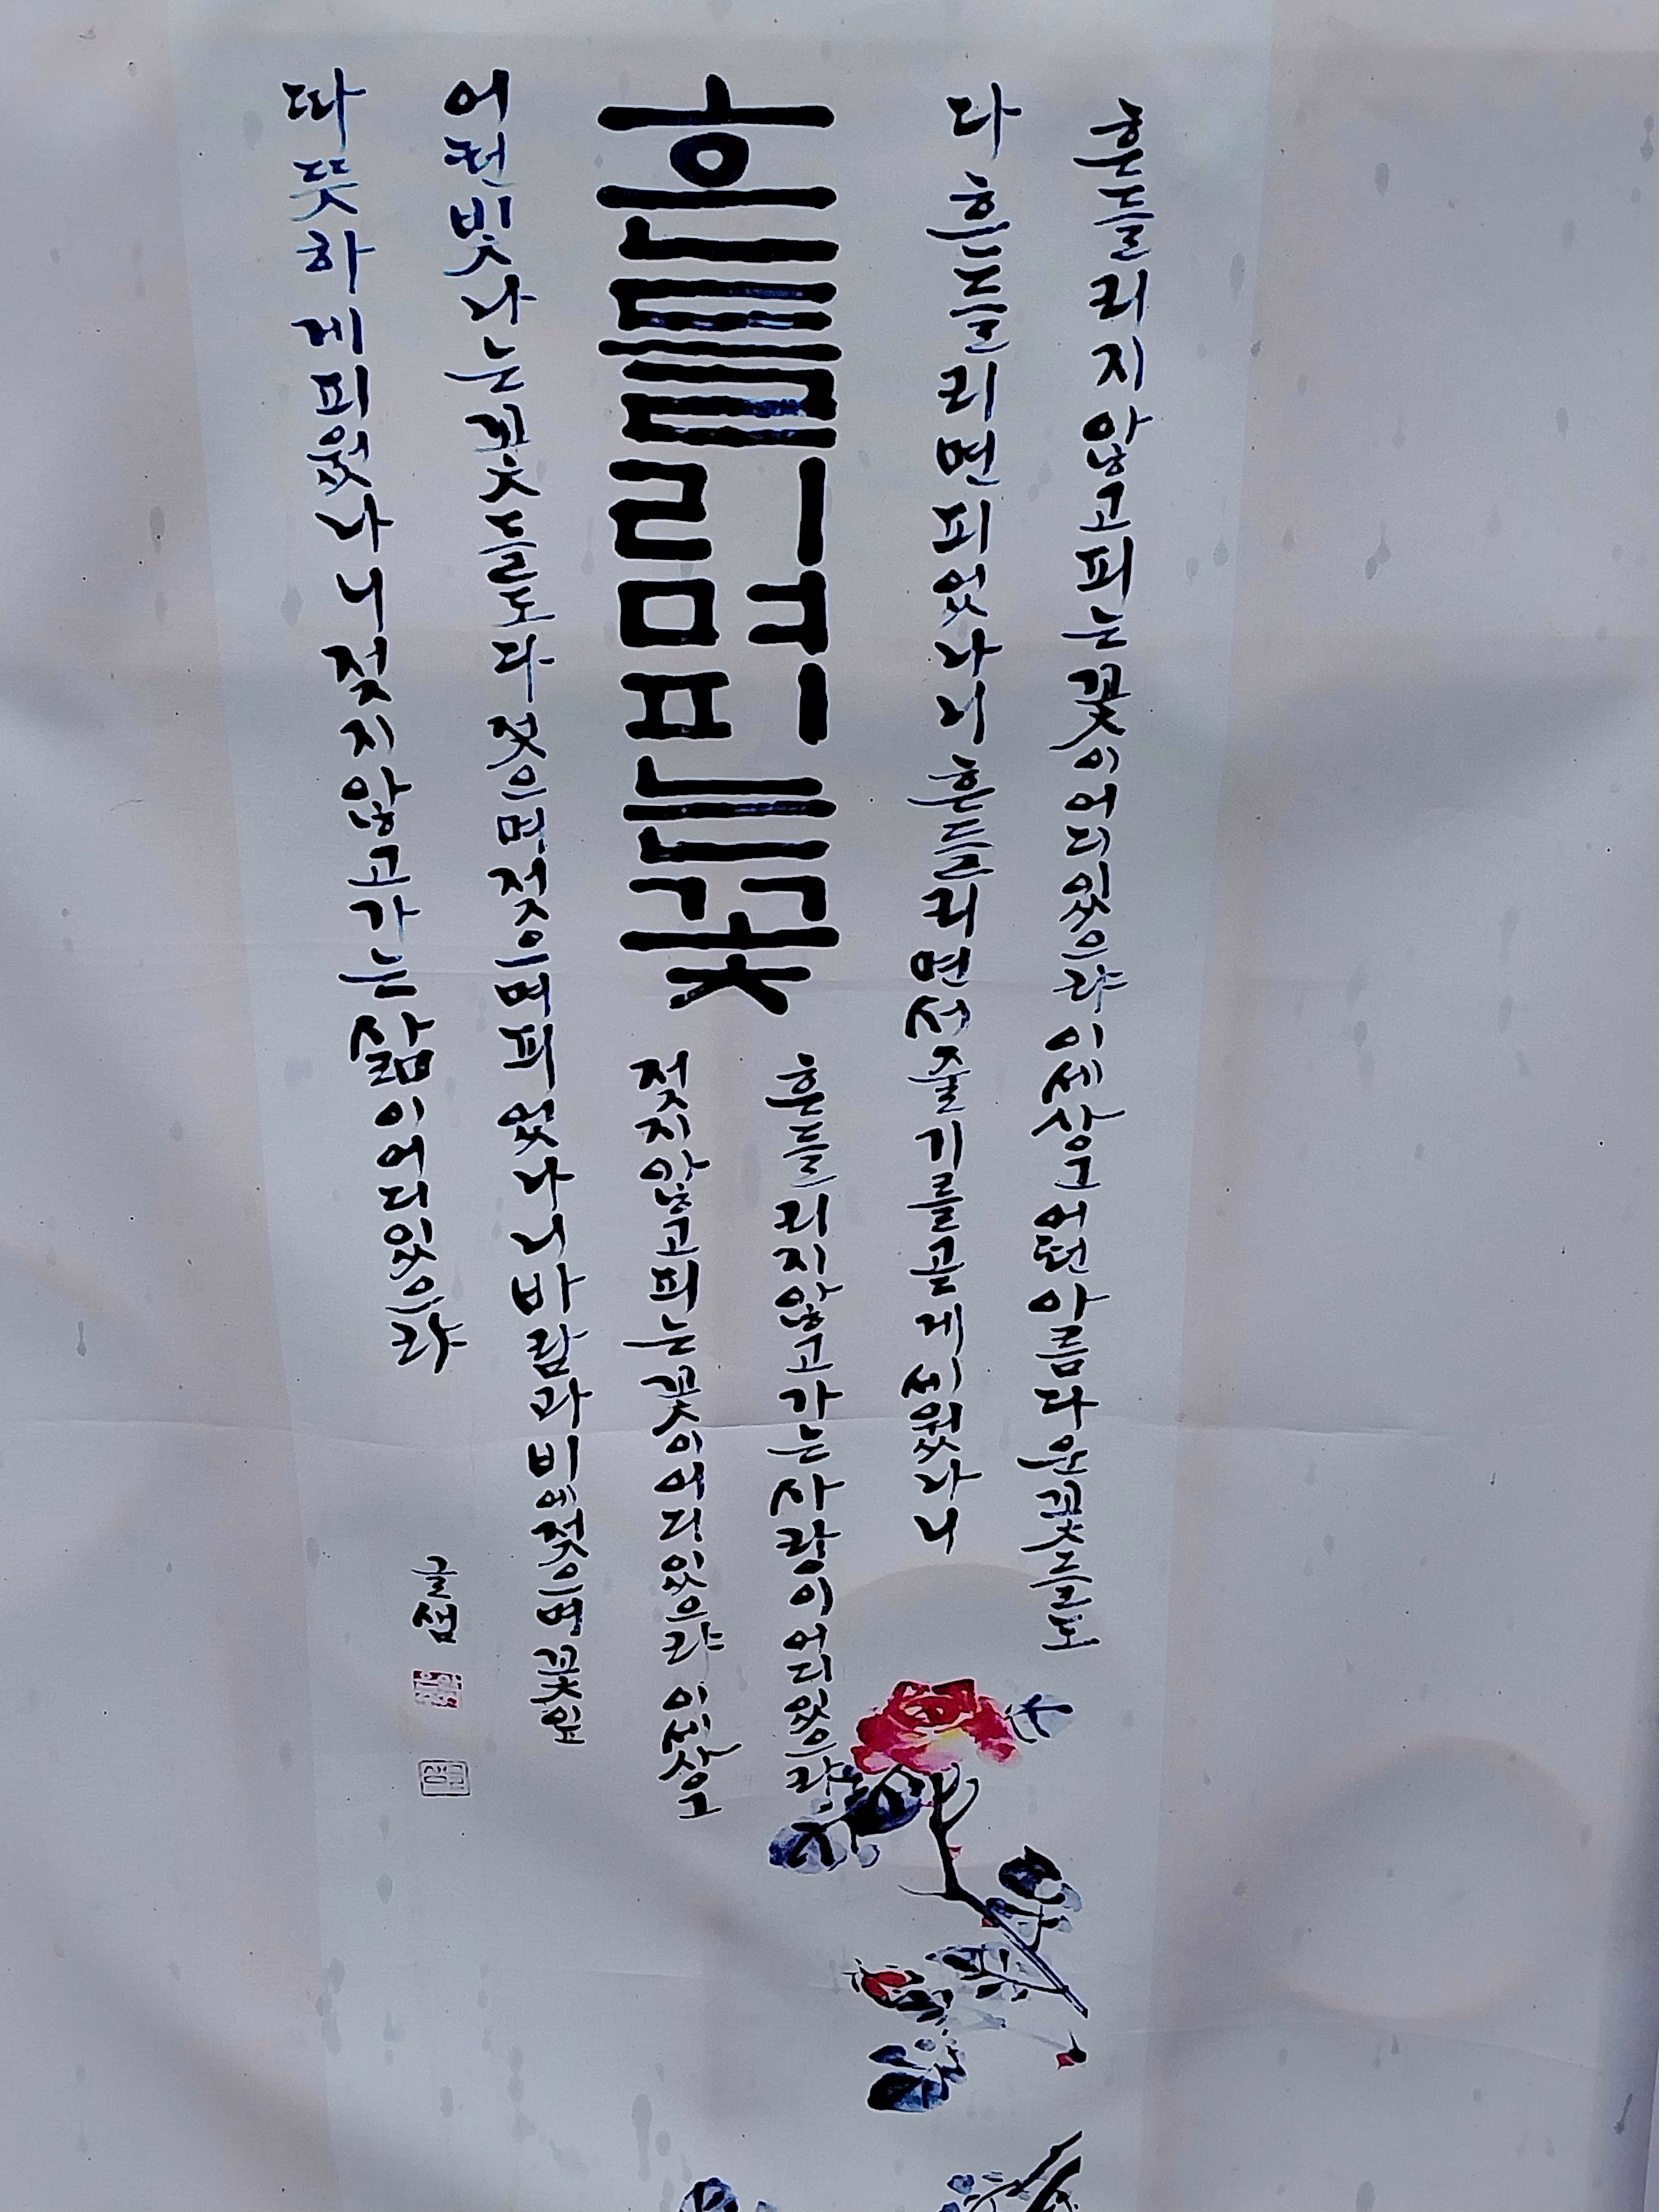 흔들리지않고피는꽃이어디있으랴이세상그어떤아름다운꽃들도
다흔들리면피었나니흔들리면서줄기를곧게세웠나니
흔들리며피는꽃
흔들리지않고가는사랑이어디있으랴
젖지않고피는꽃이어디있으랴이세상그
어떤빛나는꽃들도다젖으며젖으며피었나니바람과비에젖으며꽃잎
따뜻하게피웠나니젖지않고가는삶이어디있으랴
글샘